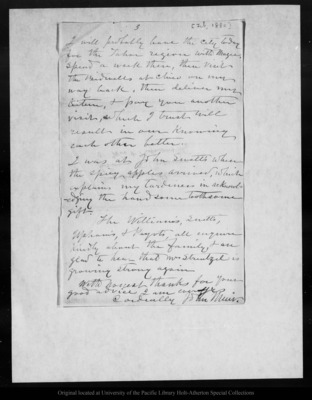 3
I will probably leave the city today
for the Tahoe region with Magee,
spend a week there, then visit
the Bidwells at Chico on my
way back, then deliver my
lecture, & pay you another
visit, which I trust will
results in our knowing
each other better.
I was at John Swetts when
the spicy apples arrived, which
explains my tardiness in
the handsome toothsome
gift.
The Williams, Swetts,
Upham's, & all enquire
kindly about the family, & are
glad to hear that Mr Strentzel is
growing strong again
With thanks for your
good advice I am
Cordially John Muir
Original located at University of the Pacific Library Holt-Atherton Special Collections